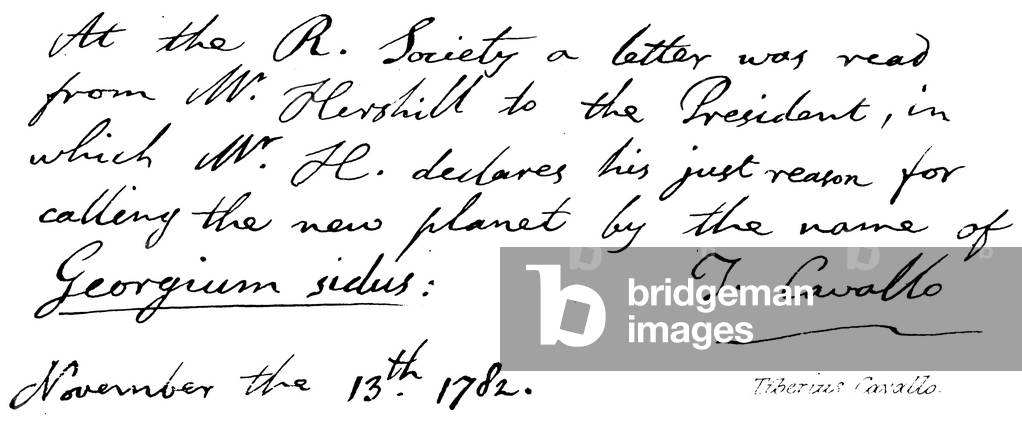 At the R. Society a letter was read
from Mr. Hershill to the President, in
which Mr. H. declares his just reason for
calling the new planet by the name of
Georgium sidus:
T. Cavallo
bridgeman
images
November the 13th. 1782.
Tiberius Cavallo.